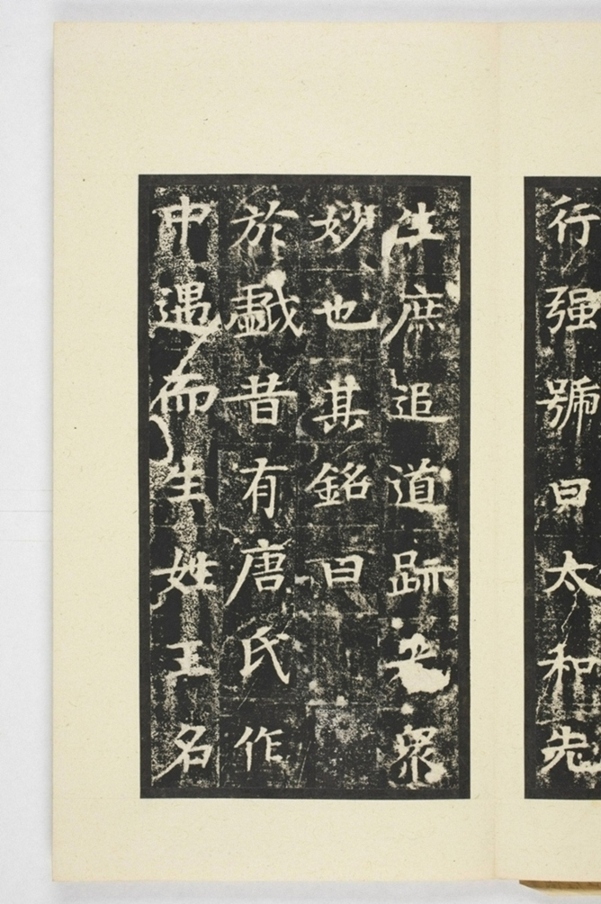 行强號曰太和先
生庶追道跡衆
妙也其銘曰
於戱昔有唐氏作
中遇而生姓王名